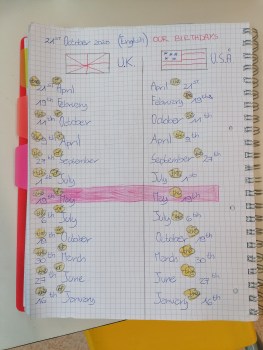 21st October 2020 (English) OUR BIRTHDAYS
U.K U.S.A
21st April April 21st
19th February February 19th
11th October October 11th
April April 9th
September September 27th
1st July July 1st
May May 19th
July July 6th
19th October October 19th
30th March March 30th
27th June June 27th
16th January January 16th